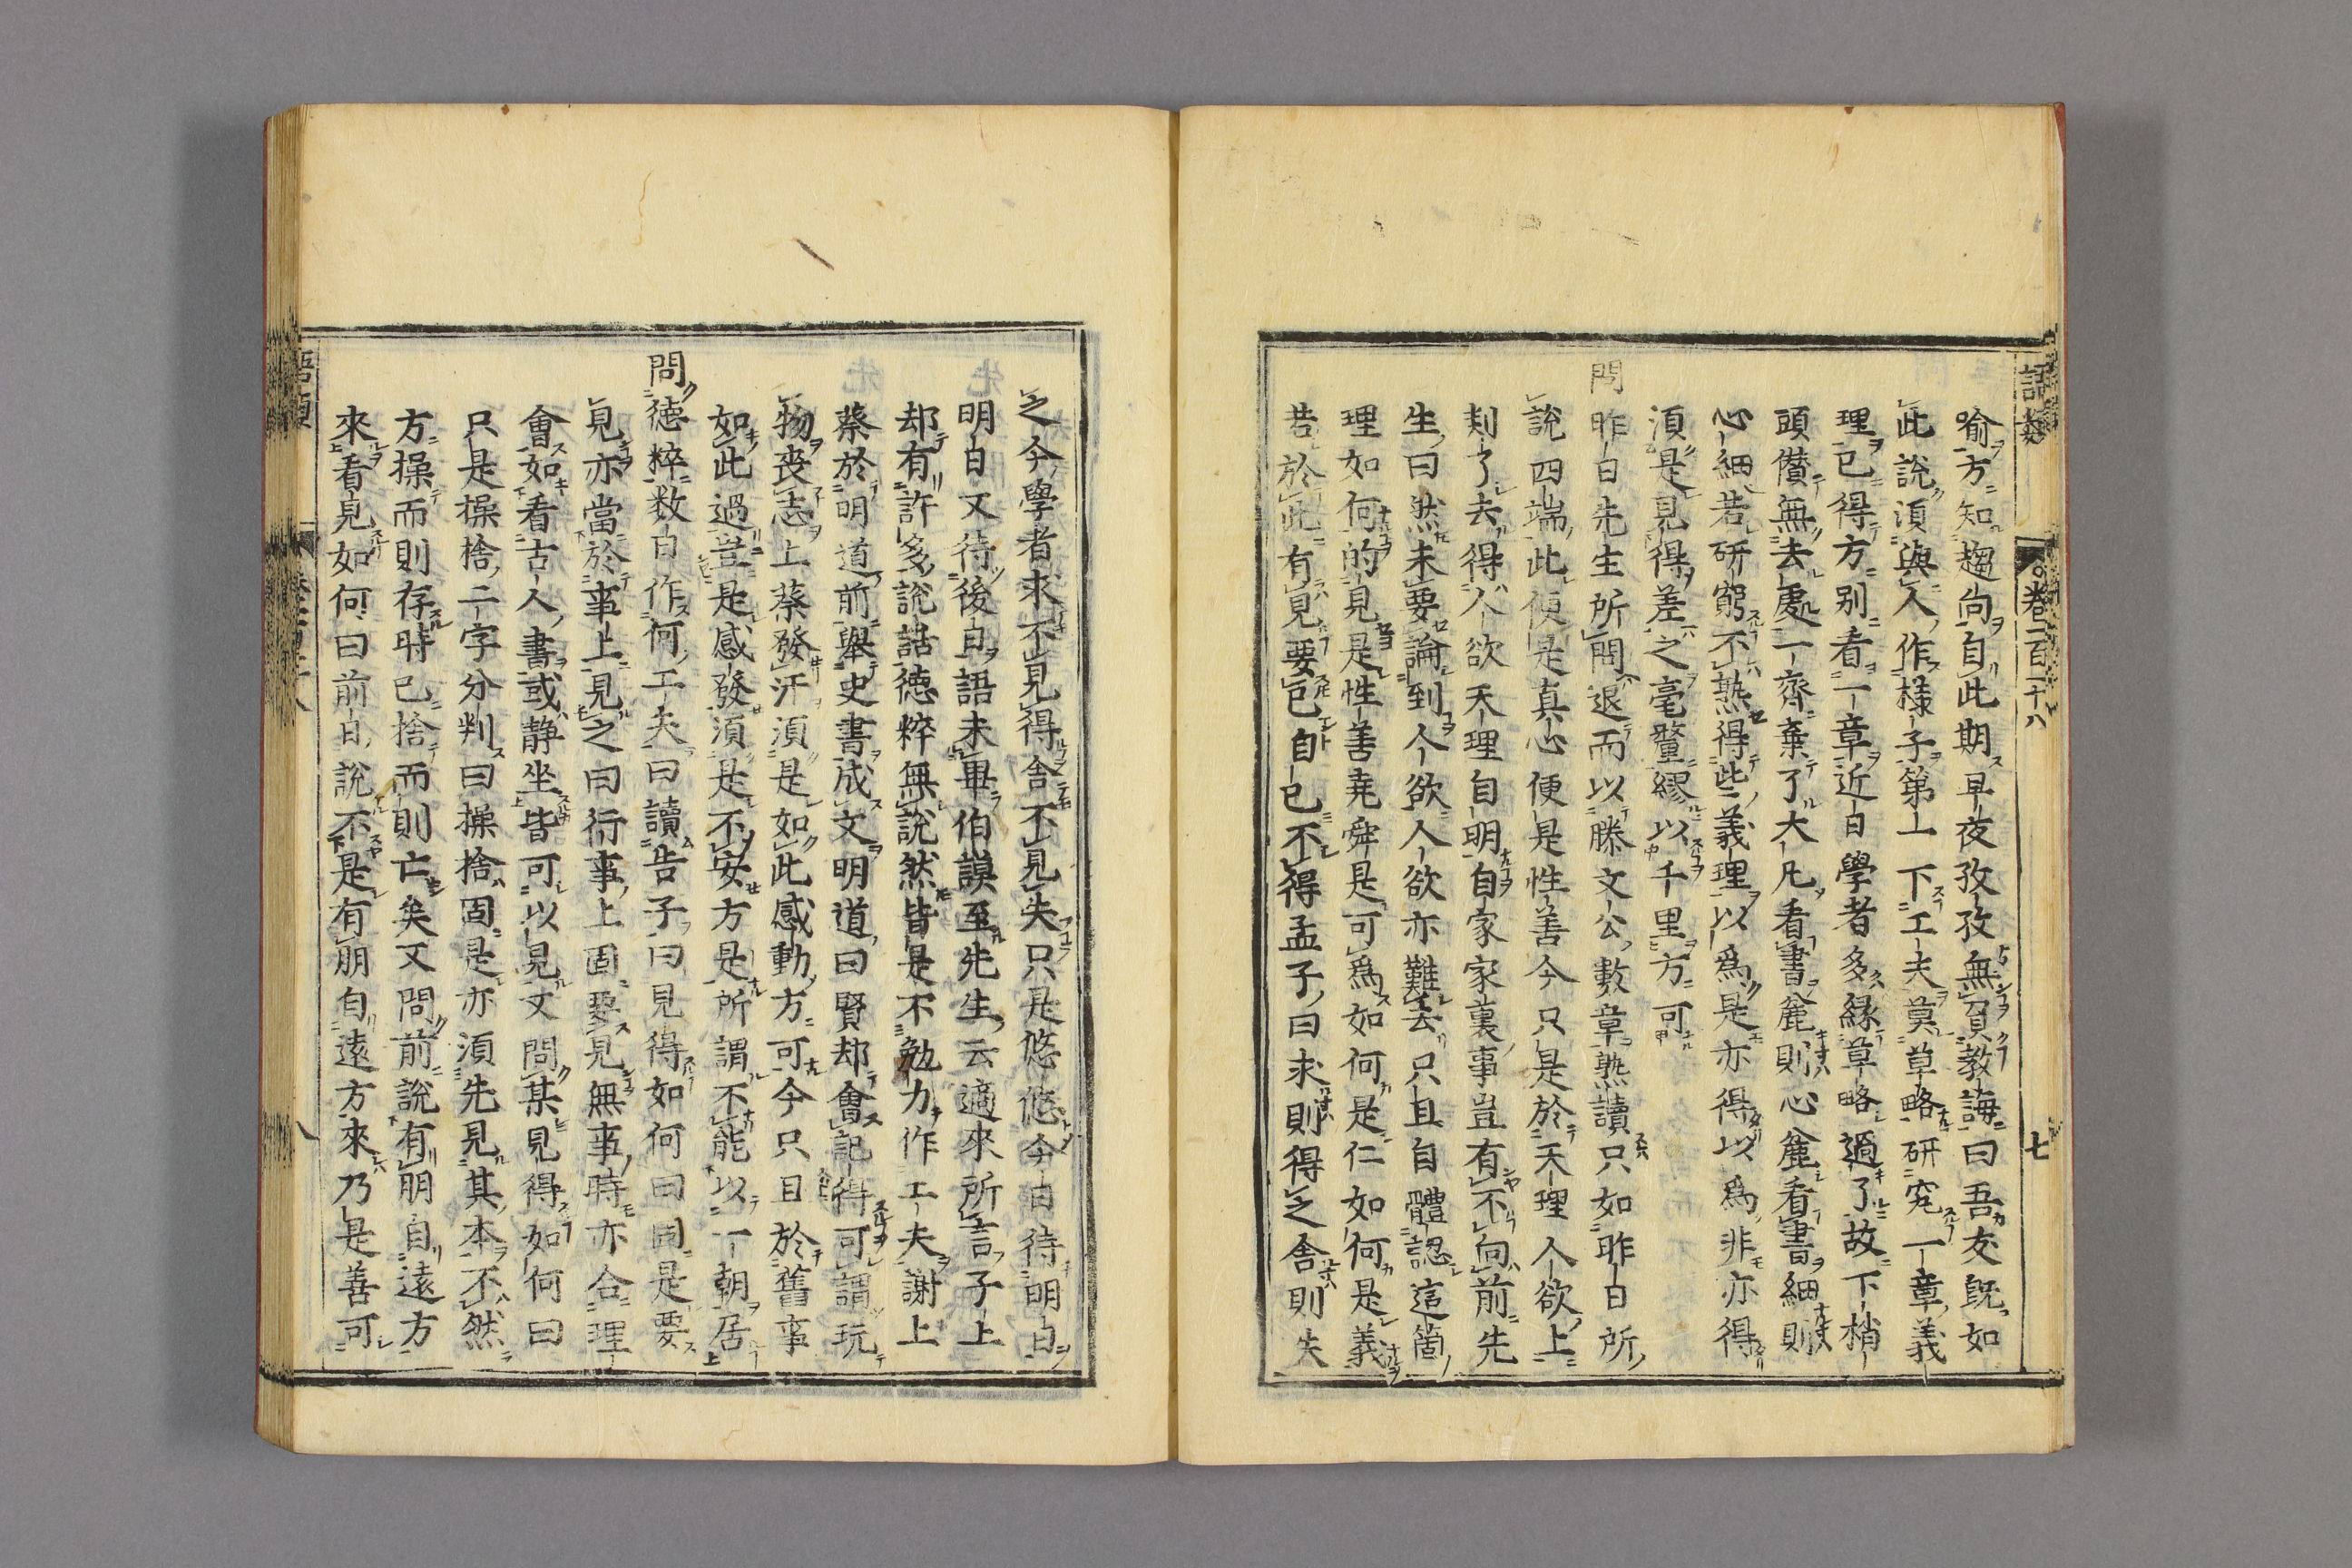 語類　卷一百一十八　七
喻方知趨向自此期早夜孜孜無負教誨曰吾友既如
此說須與人作樣子第一下工夫莫草略研究一章義
理已得方別看一章近日學者多緣草略過了故下梢
頭儹無去處一齊棄了大凡看書麁則心麁看書細則
心細若研窮不熟得些義理以為是亦得以為非亦得
須是見得差之毫釐繆以千里方可
問昨日先生所問退而以滕文公數章熟讀只如昨日所
說四端此便是真心便是性善今只是於天理人欲上
判了去得人欲天理自明自家家裏事豈有不向前先
生曰然未要論到人欲人欲亦難去只且自體認這箇
理如何的見是性善堯舜是可為如何是仁如何是義
若於此有見要已自已不得孟子曰求則得之舍則失
之今學者求不見得舍不見失只是悠悠今日待明日
明日又待後日語未畢伯謨至先生云適來所言子上
却有許多說話德粹無說然皆是不勉力作工夫謝上
蔡於明道前舉史書成文明道曰賢却會記得可謂玩
物喪志上蔡發汗須是如此感動方可今只且於舊事
如此過豈是感發須是不安方是所謂不能以一朝居
問德粹数日作何工夫曰讀告子曰見得如何曰固是要
見亦當於事上見之曰行事上固要見無事時亦合理
會如看古人書或静坐皆可以見又問某見得如何曰
只是操捨二字分判曰操捨固是亦須先見其本不然
方操而則存時已捨而則亡矣又問前說有朋自遠方
來看見如何曰前日說不是有朋自遠方來乃是善可
語類　八